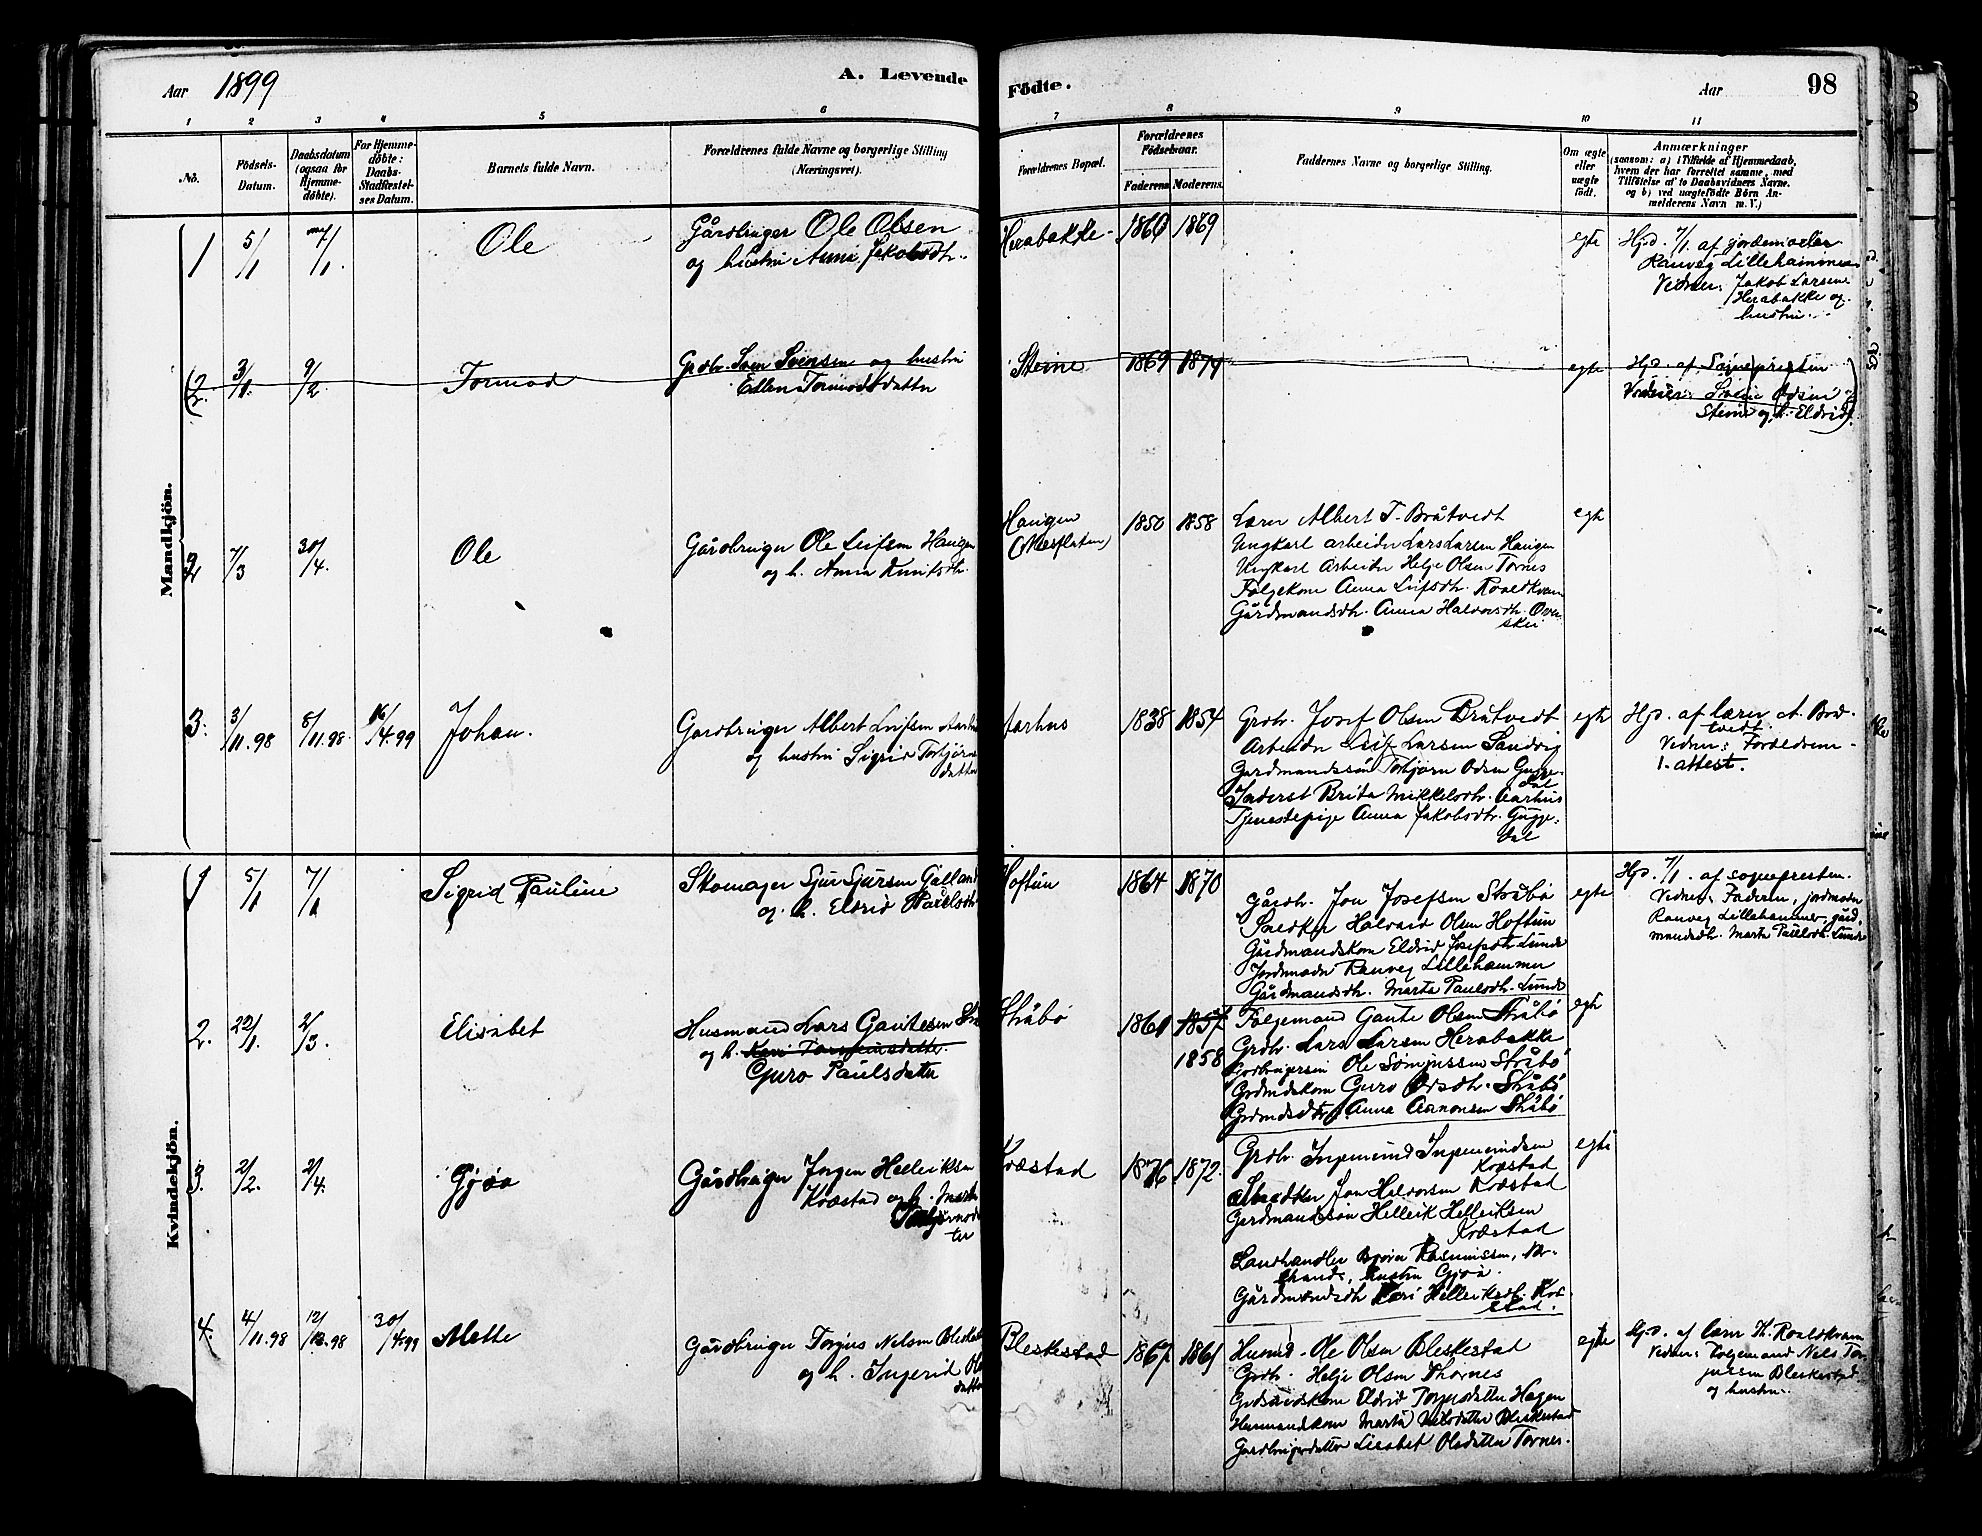 Aar 1899
A. Levende
Födte.
Aar
98
1 2 3 4 5 6 7 8 9 10 11
No.
Födsels-
Datum.
Daabsdatum
(ogsaa for
Hjemme-
döbte).
For Hjemme-
döbte:
Daabs-
Stadfæstel-
ses Datum.
Barnets fulde Navn.
Forældrenes fulde Navne og borgerlige Stilling
(Næringsvei).
Forældrenes Bopæl.
Forældrenes
Födselsaar.
Faderens.
Moderens.
Faddernes Navne og borgerlige Stilling.
Om ægte
eller
uægte
födt.
Anmærkninger
(saasom: a) i Tilfælde af Hjemmedaab,
hvem der har forrettet samme, med
Tilföielse af to Daabsvidners Navne.
og b) ved uægtefödte Börn An-
melderens Navn m. V.)
Mandkjön.
1 5/1 7/1 Ole
Gårdbruger Ole Olsen
og hustru Anna Jakobsdtr.
Herabakke 1860 1869
egte
Hjd. 7/1. af jordemoder
Ranveg Lillehammer
Vidner: Jakob Larsen
Herabakke og
hustru.
2. 3/1. 9/2. Tormod
Grdbr. Sven Svensen og hustru
Ellen Tormodsdatter
Steine 1869 1874
egte
Hjd. af Sognepresten
Vidner: Svein Odsen
Steine og h. Eldrid
2 7/3 30/4. Ole
Gårdbruger Ole Leifsen Haugen
og h. Anna Knutsdtr.
Haugen
(Nesflaten)
1850 1858
Lærer Albert T. Bråtvedt
Ungkarl arbeider Lars Larsen Haugen
Ungkarl Arbeider Helje Olsen Tornes
Følgekone Anna Leifsdtr. Roaldkvam
Gårdmandsdtr. Anna Halvorsdtr. Øver-
skei.
egte
3. 3/11.98 8/11.98. 16/4.99 Johan.
Gardbruger Albert Leifsen Aarhus
og hustru Sigrid Torbjørns
datter
Aarhus 1838 1854
Grdbr. Josef Olsen Bråtvedt
Arbeider Leif Larsen Sandvig
Gardmandssøn Torbjørn Odsen Gugge-
dal
Inderst Brita Mikkelsdtr. Aarhus
Tjenestepige Anna Jakobsdtr. Gugge-
dal
egte
Hjd. af lærer A. Bråt-
vedt.
Vidner: Foreldrene -
1. attest.
Kvindekjön.
1 5/1 7/1 Sigrid Pauline
Skomager Sjur Sjursen Gælland
og h. Eldrid Paulsdtr
Hoftun 1864 1870
Gårdbr. Jon Josefsen Stråbø
Snedker Halvard Olsen Hoftun
Gårdmandskone Eldrid Josefsdtr Lunde
Jordemoder Ranveg Lillehammer
Gårdmandsdtr. Marta Paulsdtr. Lunde
egte
Hjd. 7/1. af sognepresten.
Vidner: Faderen, jordmoder
Ranveg Lillehammer, gård-
mandsdtr. Marta Paulsdtr. Lunde
2. 22/1. 2/3. Elisabet
Husmand Lars Gautesen Strå
og h. Kari Torsteinsdatter
Guro Paulsdatter
Stråbø 1861 1857
1858
Følgemand Gaute Olsen Stråbø
Grdbr. Lars Larsen Herabakke
Gardbrugersøn Ole Sømmessen Stråbø
Grdmdskone Guro Orsdtr. Stråbø
Grdmdsdtr. Anna Aanonsen Stråbø
egte
3. 2/2. 2/4. Gjøa
Gårdbruger Jørgen Hellerksen
Kvæstad og h. Marta
Torbjørnsdat
ter
Kvæstad 1876 1872.
Grdbr. Ingemund Ingemundsen
Kvæstad
Snedker Jon Halvorsen Kvæstad
Gerdmandssøn Hellerik Helleriksen
Kvæstad
Landhandler Bjørn Rasmussen, Ne-
strand, hustru Gjøa.
Gårdmandsdtr Kari Helleriksdtr. Kvæ-
stad.
egte
4. 4/11.98 12/12.98 30/4.99 Mette
Gårdbruger Torgius Nilsen Bleske
og h. Ingerid Ols
datter
Bleskestad 1867 1861
Husmd. Ole Olsen Bleskestad
Grdbr. Helje Olsen Thornes
Grdmandskone Eldrid Torgiusdatter Hagen
Husmandkone Marta Nilsdatter Bleskestad
Gardbrugerdatter Liesbet Olsdatter Tornes.
egte
Hjd. af lærer Th. Roaldkvam
Vidner: Følgemand Nils Tor-
jussen Bleskestad
og hustru.